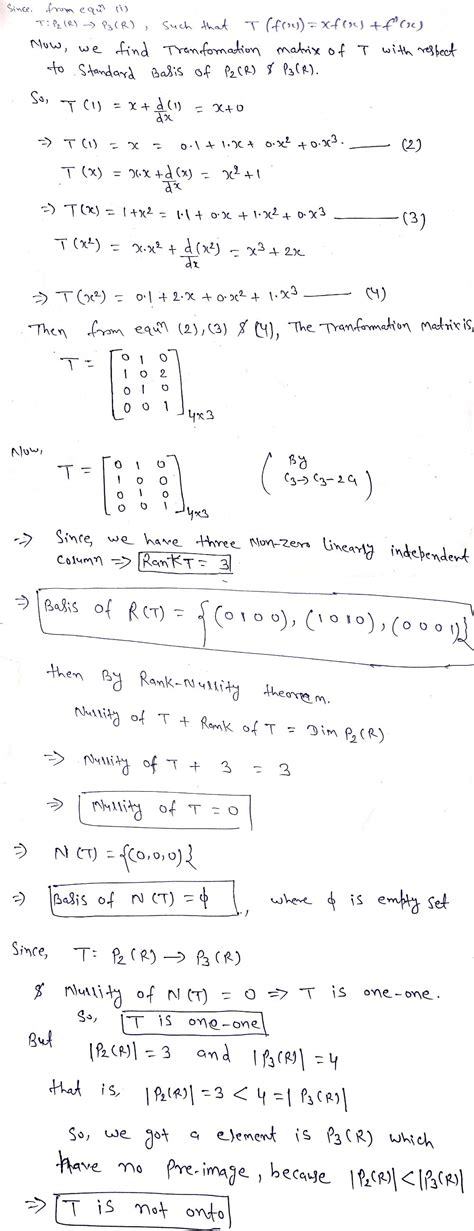 Since, from equⁿ (1)
T: P₂(R) → P₃(R), such that T(f(x)) = xf(x) + f'(x)
Now, we find Tranformation matrix of T with respect
to Standard Basis of P₂(R) & P₃(R).
So, T(1) = x + d/dx (1) = x+0
⇒ T(1) = x = 0.1 + 1.x + 0.x² + 0.x³. —— (2)
T(x) = x.x + d/dx (x) = x² + 1
⇒ T(x) = 1+x² = 1.1 + 0.x + 1.x² + 0.x³ —— (3)
T(x²) = x.x² + d/dx (x²) = x³ + 2x
⇒ T(x²) = 0.1 + 2.x + 0.x² + 1.x³ —— (4)
Then from equⁿ (2), (3) & (4), The Tranformation Matrix is,
T = [0 1 0
1 0 2
0 1 0
0 0 1]₄ₓ₃
Now,
T = [0 1 0
1 0 0
0 1 0
0 0 1]₄ₓ₃ (By C₃→C₃-2C₁)
⇒ Since, we have three Non-zero linearly independent
column ⇒ Rank T = 3
⇒ Basis of R(T) = {(0 1 0 0), (1 0 1 0), (0 0 0 1)}
then By Rank-Nullity theorem.
Nullity of T + Rank of T = Dim P₂(R)
⇒ Nullity of T + 3 = 3
⇒ Nullity of T = 0
⇒ N(T) = {(0,0,0)}
⇒ Basis of N(T) = ϕ, where ϕ is empty set
Since, T: P₂(R) → P₃(R)
& Nullity of N(T) = 0 ⇒ T is one-one.
So, T is one-one
But |P₂(R)| = 3 and |P₃(R)| = 4
that is, |P₂(R)| = 3 < 4 = |P₃(R)|
So, we got a element is P₃(R) which
have no pre-image, because |P₂(R)| < |P₃(R)|
⇒ T is not onto